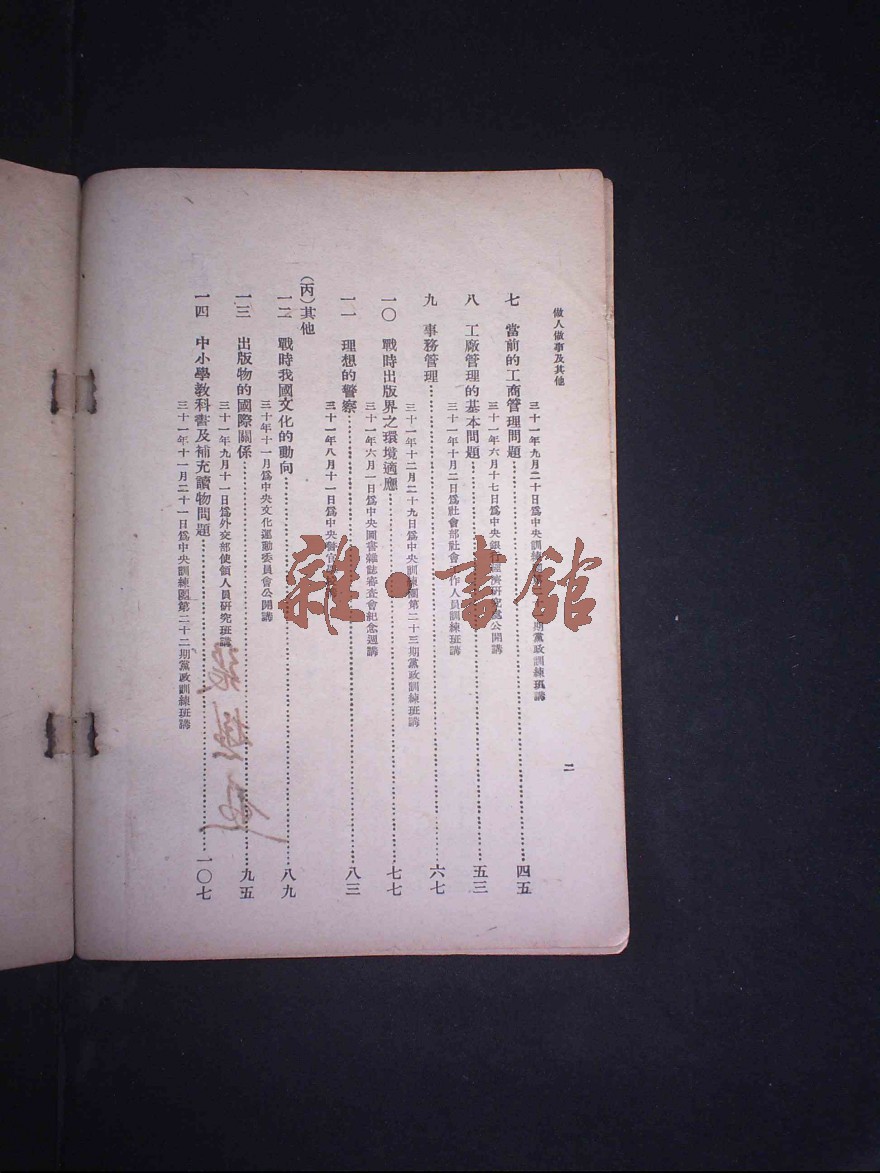 做人做事及其他
二
三十一年九月二十日爲中央訓練團第二期黨政訓練班講
七 當前的工商管理問題 四五
三十一年六月十七日爲中央銀行經濟研究處公開講
八 工廠管理的基本問題 五三
三十一年十月二日爲社會部社會工作人員訓練班講
九 事務管理 六七
三十一年十二月二十九日爲中央訓練團第二十三期黨政訓練班講
一〇 戰時出版界之環境適應 七七
三十一年六月一日爲中央圖書雜誌審查會紀念週講
一一 理想的警察 八三
三十一年八月十一日爲中央警官
(丙)其他
一二 戰時我國文化的動向 八九
三十年十一月爲中央文化運動委員會公開講
一三 出版物的國際關係 九五
三十一年九月十一日爲外交部使領人員研究班講
一四 中小學教科書及補充讀物問題 一〇七
三十一年十一月二十一日爲中央訓練團第二十二期黨政訓練班講
雜·書館